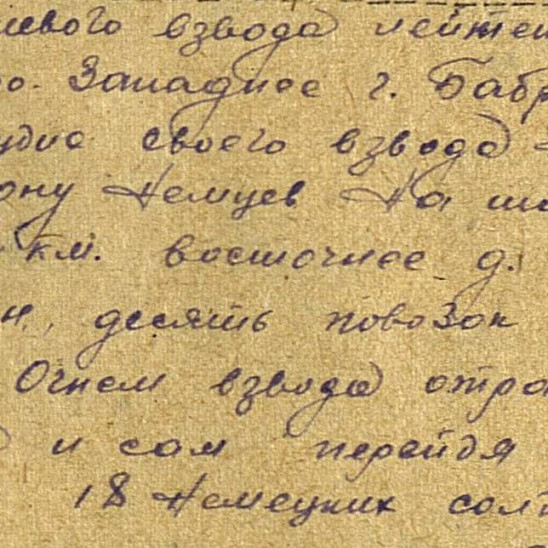 невого взвода лейтен
Западнее г. Бабр
удие своего взвода
ону Немцев На ш
км. восточнее д.
н, десять повозок
Огнем взвода отра
и сам перейдя
18 Немецких солд